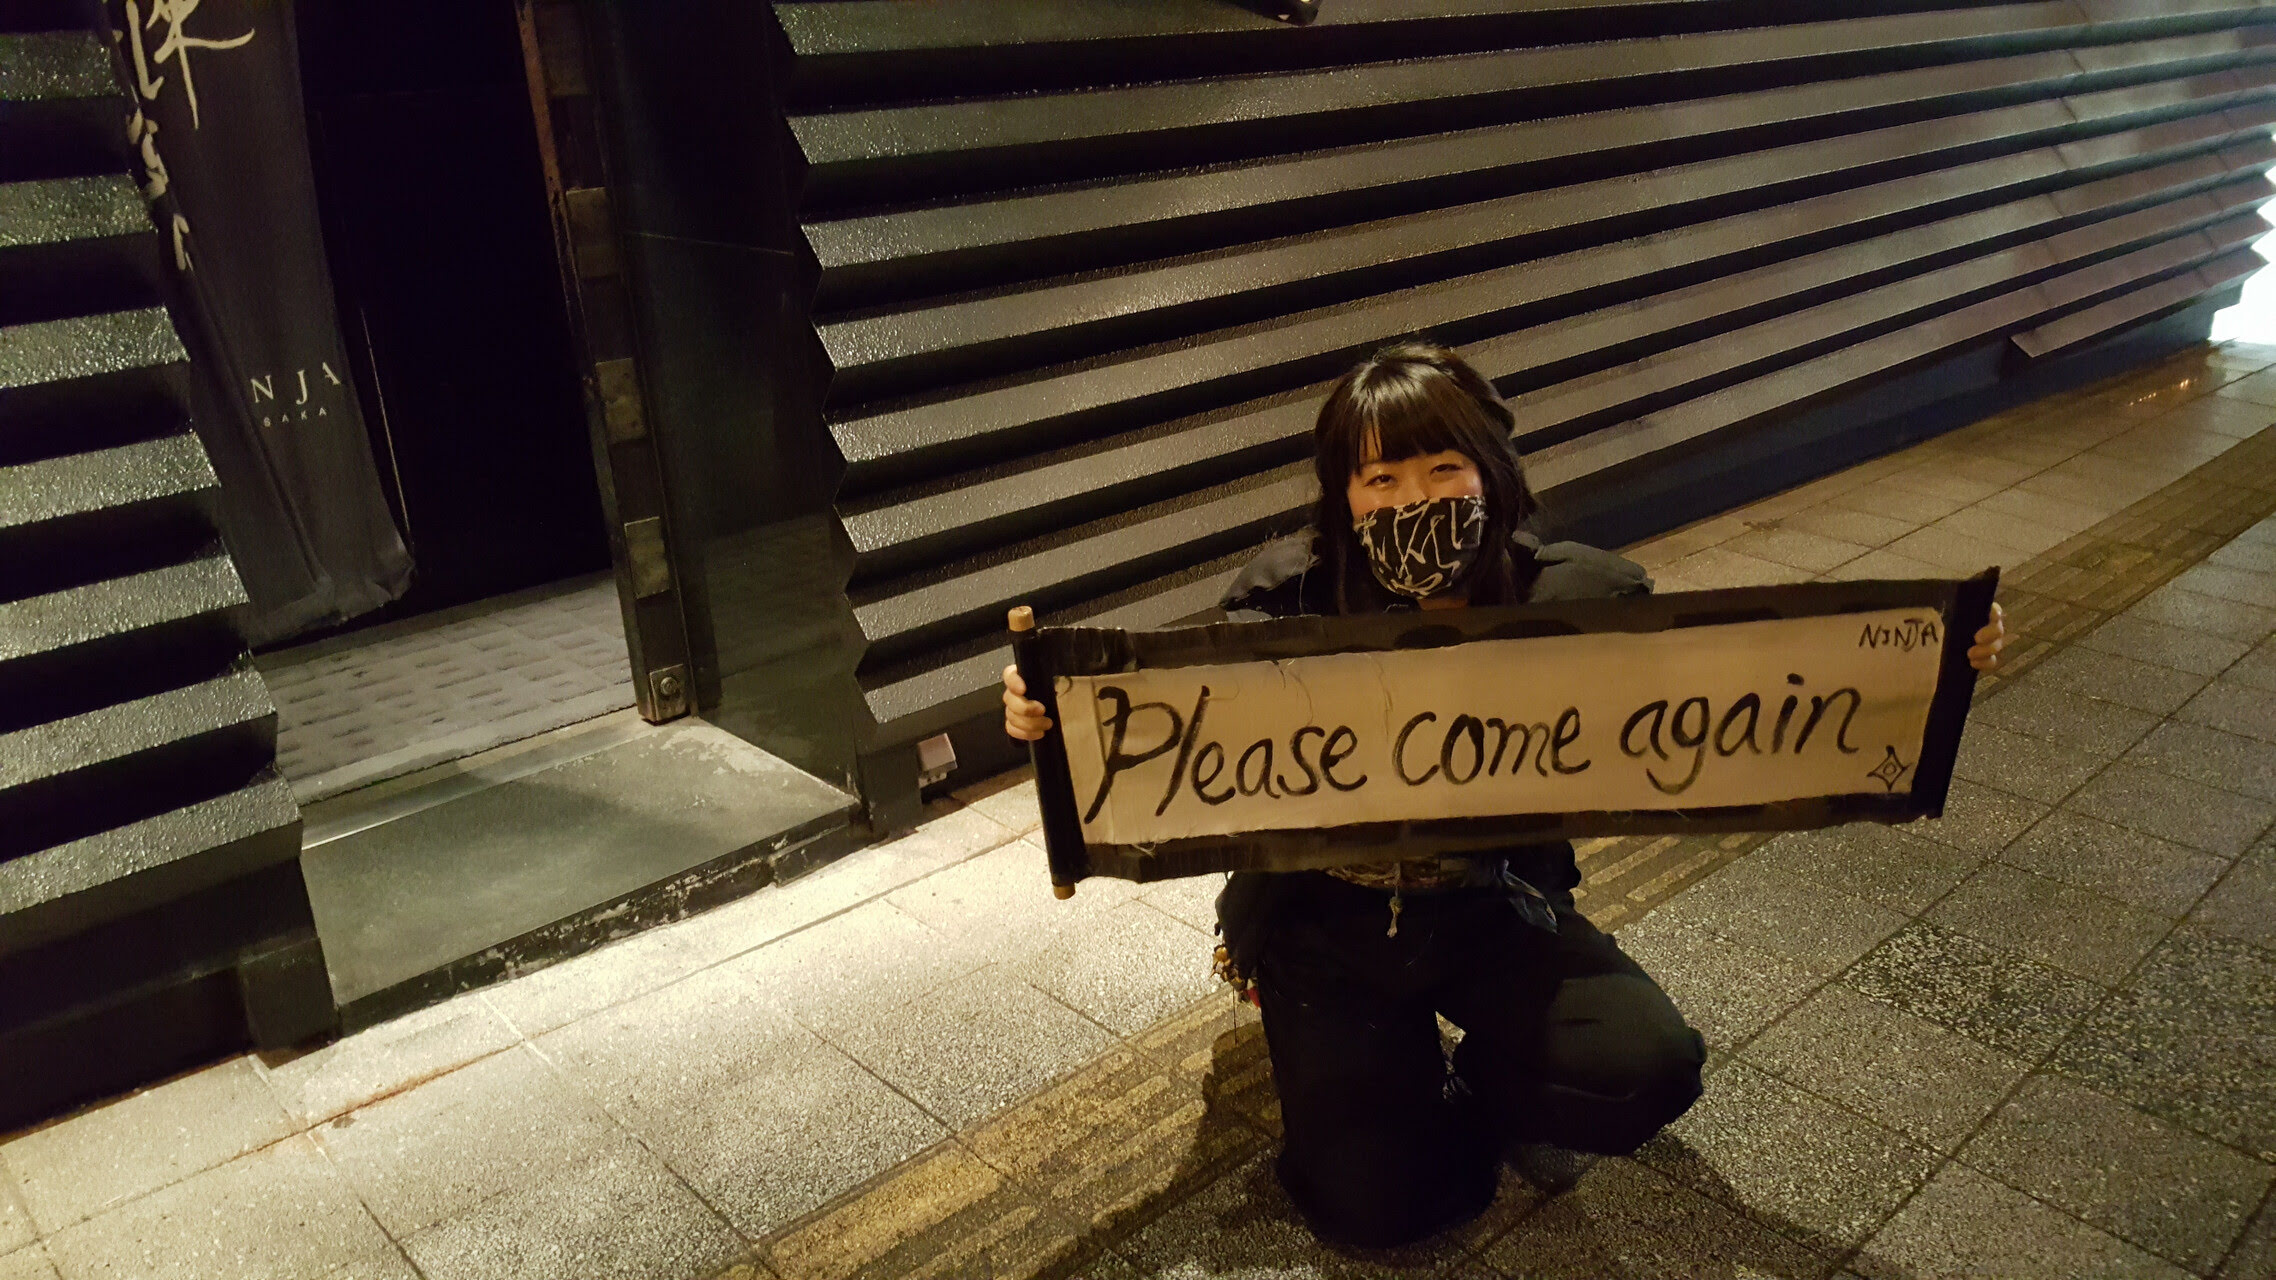 N JA
NINJA
Please come again